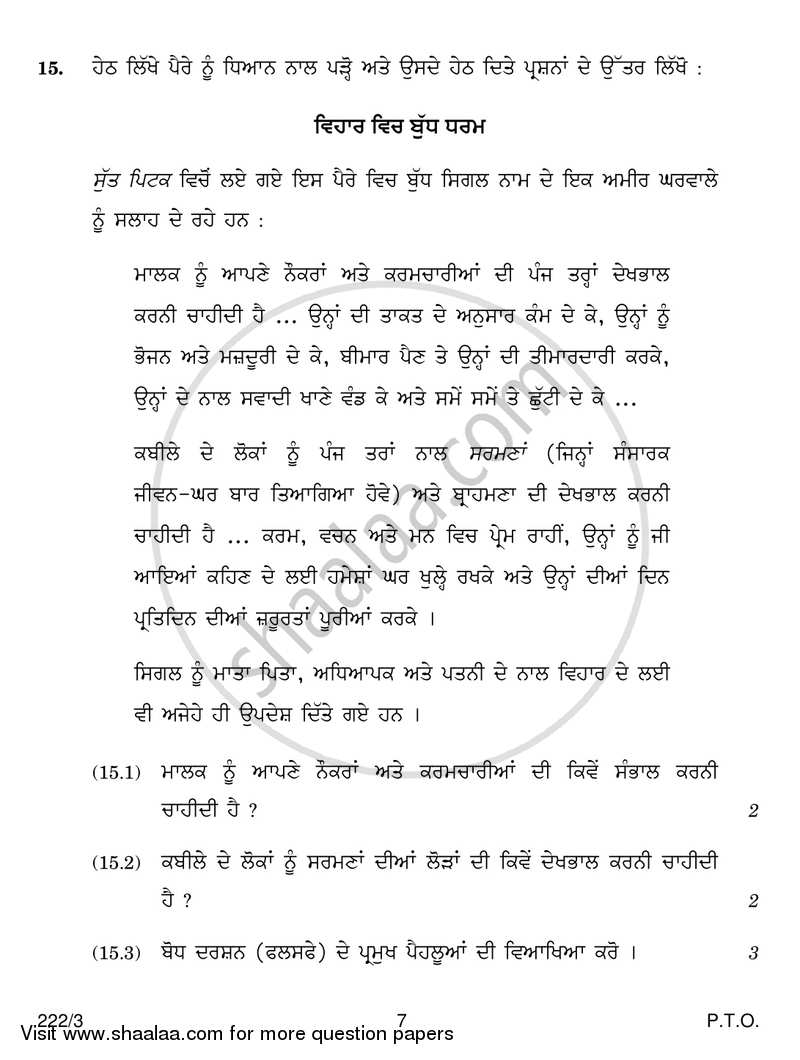 15. ਹੇਠ ਲਿੱਖੇ ਪੈਰੇ ਨੂੰ ਧਿਆਨ ਨਾਲ ਪੜ੍ਹੋ ਅਤੇ ਉਸਦੇ ਹੇਠ ਦਿਤੇ ਪ੍ਰਸ਼ਨਾਂ ਦੇ ਉੱਤਰ ਲਿੱਖੋ :
ਵਿਹਾਰ ਵਿਚ ਬੁੱਧ ਧਰਮ
ਸੁੱਤ ਪਿਟਕ ਵਿਚੋਂ ਲਏ ਗਏ ਇਸ ਪੈਰੇ ਵਿਚ ਬੁੱਧ ਸਿਗਲ ਨਾਮ ਦੇ ਇਕ ਅਮੀਰ ਘਰਵਾਲੇ
ਨੂੰ ਸਲਾਹ ਦੇ ਰਹੇ ਹਨ :
ਮਾਲਕ ਨੂੰ ਆਪਣੇ ਨੌਕਰਾਂ ਅਤੇ ਕਰਮਚਾਰੀਆਂ ਦੀ ਪੰਜ ਤਰ੍ਹਾਂ ਦੇਖਭਾਲ
ਕਰਨੀ ਚਾਹੀਦੀ ਹੈ ... ਉਨ੍ਹਾਂ ਦੀ ਤਾਕਤ ਦੇ ਅਨੁਸਾਰ ਕੰਮ ਦੇ ਕੇ, ਉਨ੍ਹਾਂ ਨੂੰ
ਭੋਜਨ ਅਤੇ ਮਜ਼ਦੂਰੀ ਦੇ ਕੇ, ਬੀਮਾਰ ਪੈਣ ਤੇ ਉਨ੍ਹਾਂ ਦੀ ਤੀਮਾਰਦਾਰੀ ਕਰਕੇ,
ਉਨ੍ਹਾਂ ਦੇ ਨਾਲ ਸਵਾਦੀ ਖਾਣੇ ਵੰਡ ਕੇ ਅਤੇ ਸਮੇਂ ਸਮੇਂ ਤੇ ਛੁੱਟੀ ਦੇ ਕੇ ...
ਕਬੀਲੇ ਦੇ ਲੋਕਾਂ ਨੂੰ ਪੰਜ ਤਰਾਂ ਨਾਲ ਸਰਮਣਾਂ (ਜਿਨ੍ਹਾਂ ਸੰਸਾਰਕ
ਜੀਵਨ-ਘਰ ਬਾਰ ਤਿਆਗਿਆ ਹੋਵੇ) ਅਤੇ ਬ੍ਰਾਹਮਣਾ ਦੀ ਦੇਖਭਾਲ ਕਰਨੀ
ਚਾਹੀਦੀ ਹੈ ... ਕਰਮ, ਵਚਨ ਅਤੇ ਮਨ ਵਿਚ ਪ੍ਰੇਮ ਰਾਹੀਂ, ਉਨ੍ਹਾਂ ਨੂੰ ਜੀ
ਆਇਆਂ ਕਹਿਣ ਦੇ ਲਈ ਹਮੇਸ਼ਾਂ ਘਰ ਖੁਲ੍ਹੇ ਰਖਕੇ ਅਤੇ ਉਨ੍ਹਾਂ ਦੀਆਂ ਦਿਨ
ਪ੍ਰਤਿਦਿਨ ਦੀਆਂ ਜ਼ਰੂਰਤਾਂ ਪੂਰੀਆਂ ਕਰਕੇ ।
ਸਿਗਲ ਨੂੰ ਮਾਤਾ ਪਿਤਾ, ਅਧਿਆਪਕ ਅਤੇ ਪਤਨੀ ਦੇ ਨਾਲ ਵਿਹਾਰ ਦੇ ਲਈ
ਵੀ ਅਜੇਹੇ ਹੀ ਉਪਦੇਸ਼ ਦਿੱਤੇ ਗਏ ਹਨ ।
(15.1) ਮਾਲਕ ਨੂੰ ਆਪਣੇ ਨੌਕਰਾਂ ਅਤੇ ਕਰਮਚਾਰੀਆਂ ਦੀ ਕਿਵੇਂ ਸੰਭਾਲ ਕਰਨੀ
ਚਾਹੀਦੀ ਹੈ ? 2
(15.2) ਕਬੀਲੇ ਦੇ ਲੋਕਾਂ ਨੂੰ ਸਰਮਣਾਂ ਦੀਆਂ ਲੋੜਾਂ ਦੀ ਕਿਵੇਂ ਦੇਖਭਾਲ ਕਰਨੀ ਚਾਹੀਦੀ
ਹੈ ? 2
(15.3) ਬੋਧ ਦਰਸ਼ਨ (ਫਲਸਫੇ) ਦੇ ਪ੍ਰਮੁਖ ਪੈਹਲੂਆਂ ਦੀ ਵਿਆਖਿਆ ਕਰੋ । 3
shaalaa.com
222/3 7 P.T.O.
Visit www.shaalaa.com for more question papers